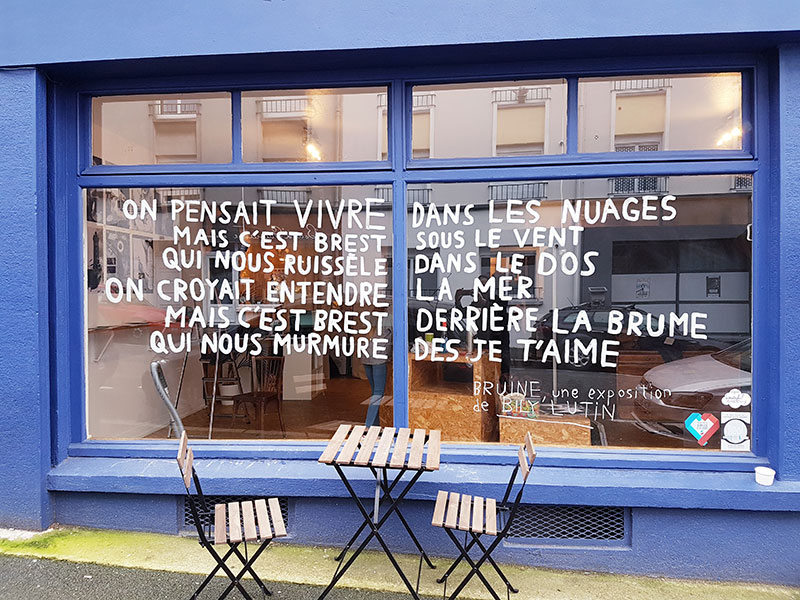 ON PENSAIT VIVRE DANS LES NUAGES
MAIS C'EST BREST SOUS LE VENT
QUI NOUS RUISSÈLE DANS LE DOS
ON CROYAIT ENTENDRE LA MER
MAIS C'EST BREST DERRIÈRE LA BRUME
QUI NOUS MURMURE DES JE T'AIME
BRUINE, une exposition
de BILY, LUTIN